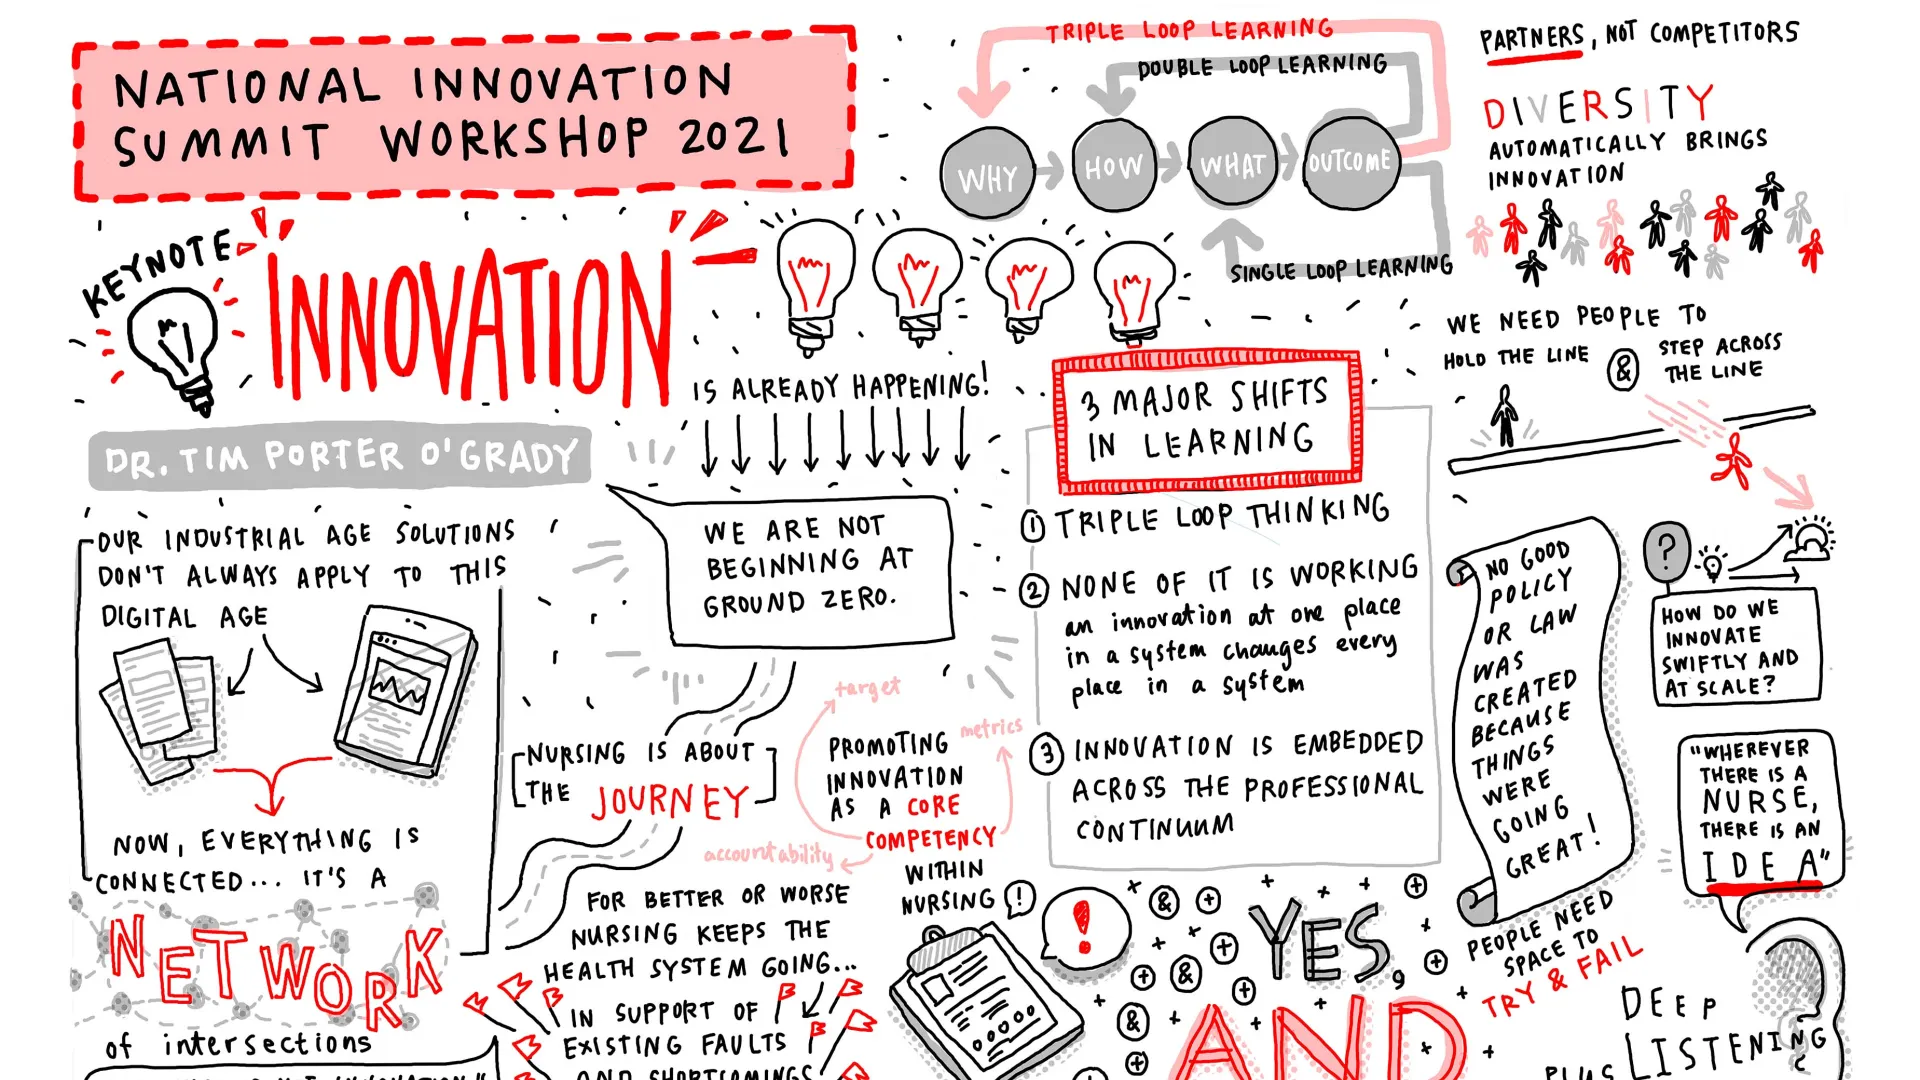 NATIONAL INNOVATION
SUMMIT WORKSHOP 2021
KEYNOTE
INNOVATION
IS ALREADY HAPPENING!
DR. TIM PORTER O'GRADY
OUR INDUSTRIAL AGE SOLUTIONS
DON'T ALWAYS APPLY TO THIS
DIGITAL AGE
NOW, EVERYTHING IS
CONNECTED... IT'S A
NETWORK
of intersections
WE ARE NOT
BEGINNING AT
GROUND ZERO.
NURSING IS ABOUT
THE JOURNEY
target
metrics
accountability
PROMOTING
INNOVATION
AS A CORE
COMPETENCY
WITHIN
NURSING
FOR BETTER OR WORSE
NURSING KEEPS THE
HEALTH SYSTEM GOING...
IN SUPPORT OF
EXISTING FAULTS
AND SHORTCOMINGS
TRIPLE LOOP LEARNING
DOUBLE LOOP LEARNING
WHY
HOW
WHAT
OUTCOME
SINGLE LOOP LEARNING
3 MAJOR SHIFTS
IN LEARNING
1 TRIPLE LOOP THINKING
2 NONE OF IT IS WORKING
an innovation at one place
in a system changes every
place in a system
3 INNOVATION IS EMBEDDED
ACROSS THE PROFESSIONAL
CONTINUUM
!
!
&
&
&
YES,
AND
PARTNERS, NOT COMPETITORS
DIVERSITY
AUTOMATICALLY BRINGS
INNOVATION
WE NEED PEOPLE TO
HOLD THE LINE & STEP ACROSS
THE LINE
NO GOOD
POLICY
OR LAW
WAS
CREATED
BECAUSE
THINGS
WERE
GOING
GREAT!
PEOPLE NEED
SPACE TO
TRY & FAIL
?
HOW DO WE
INNOVATE
SWIFTLY AND
AT SCALE?
"WHEREVER
THERE IS A
NURSE,
THERE IS AN
IDEA"
DEEP
LISTENING
PLUS